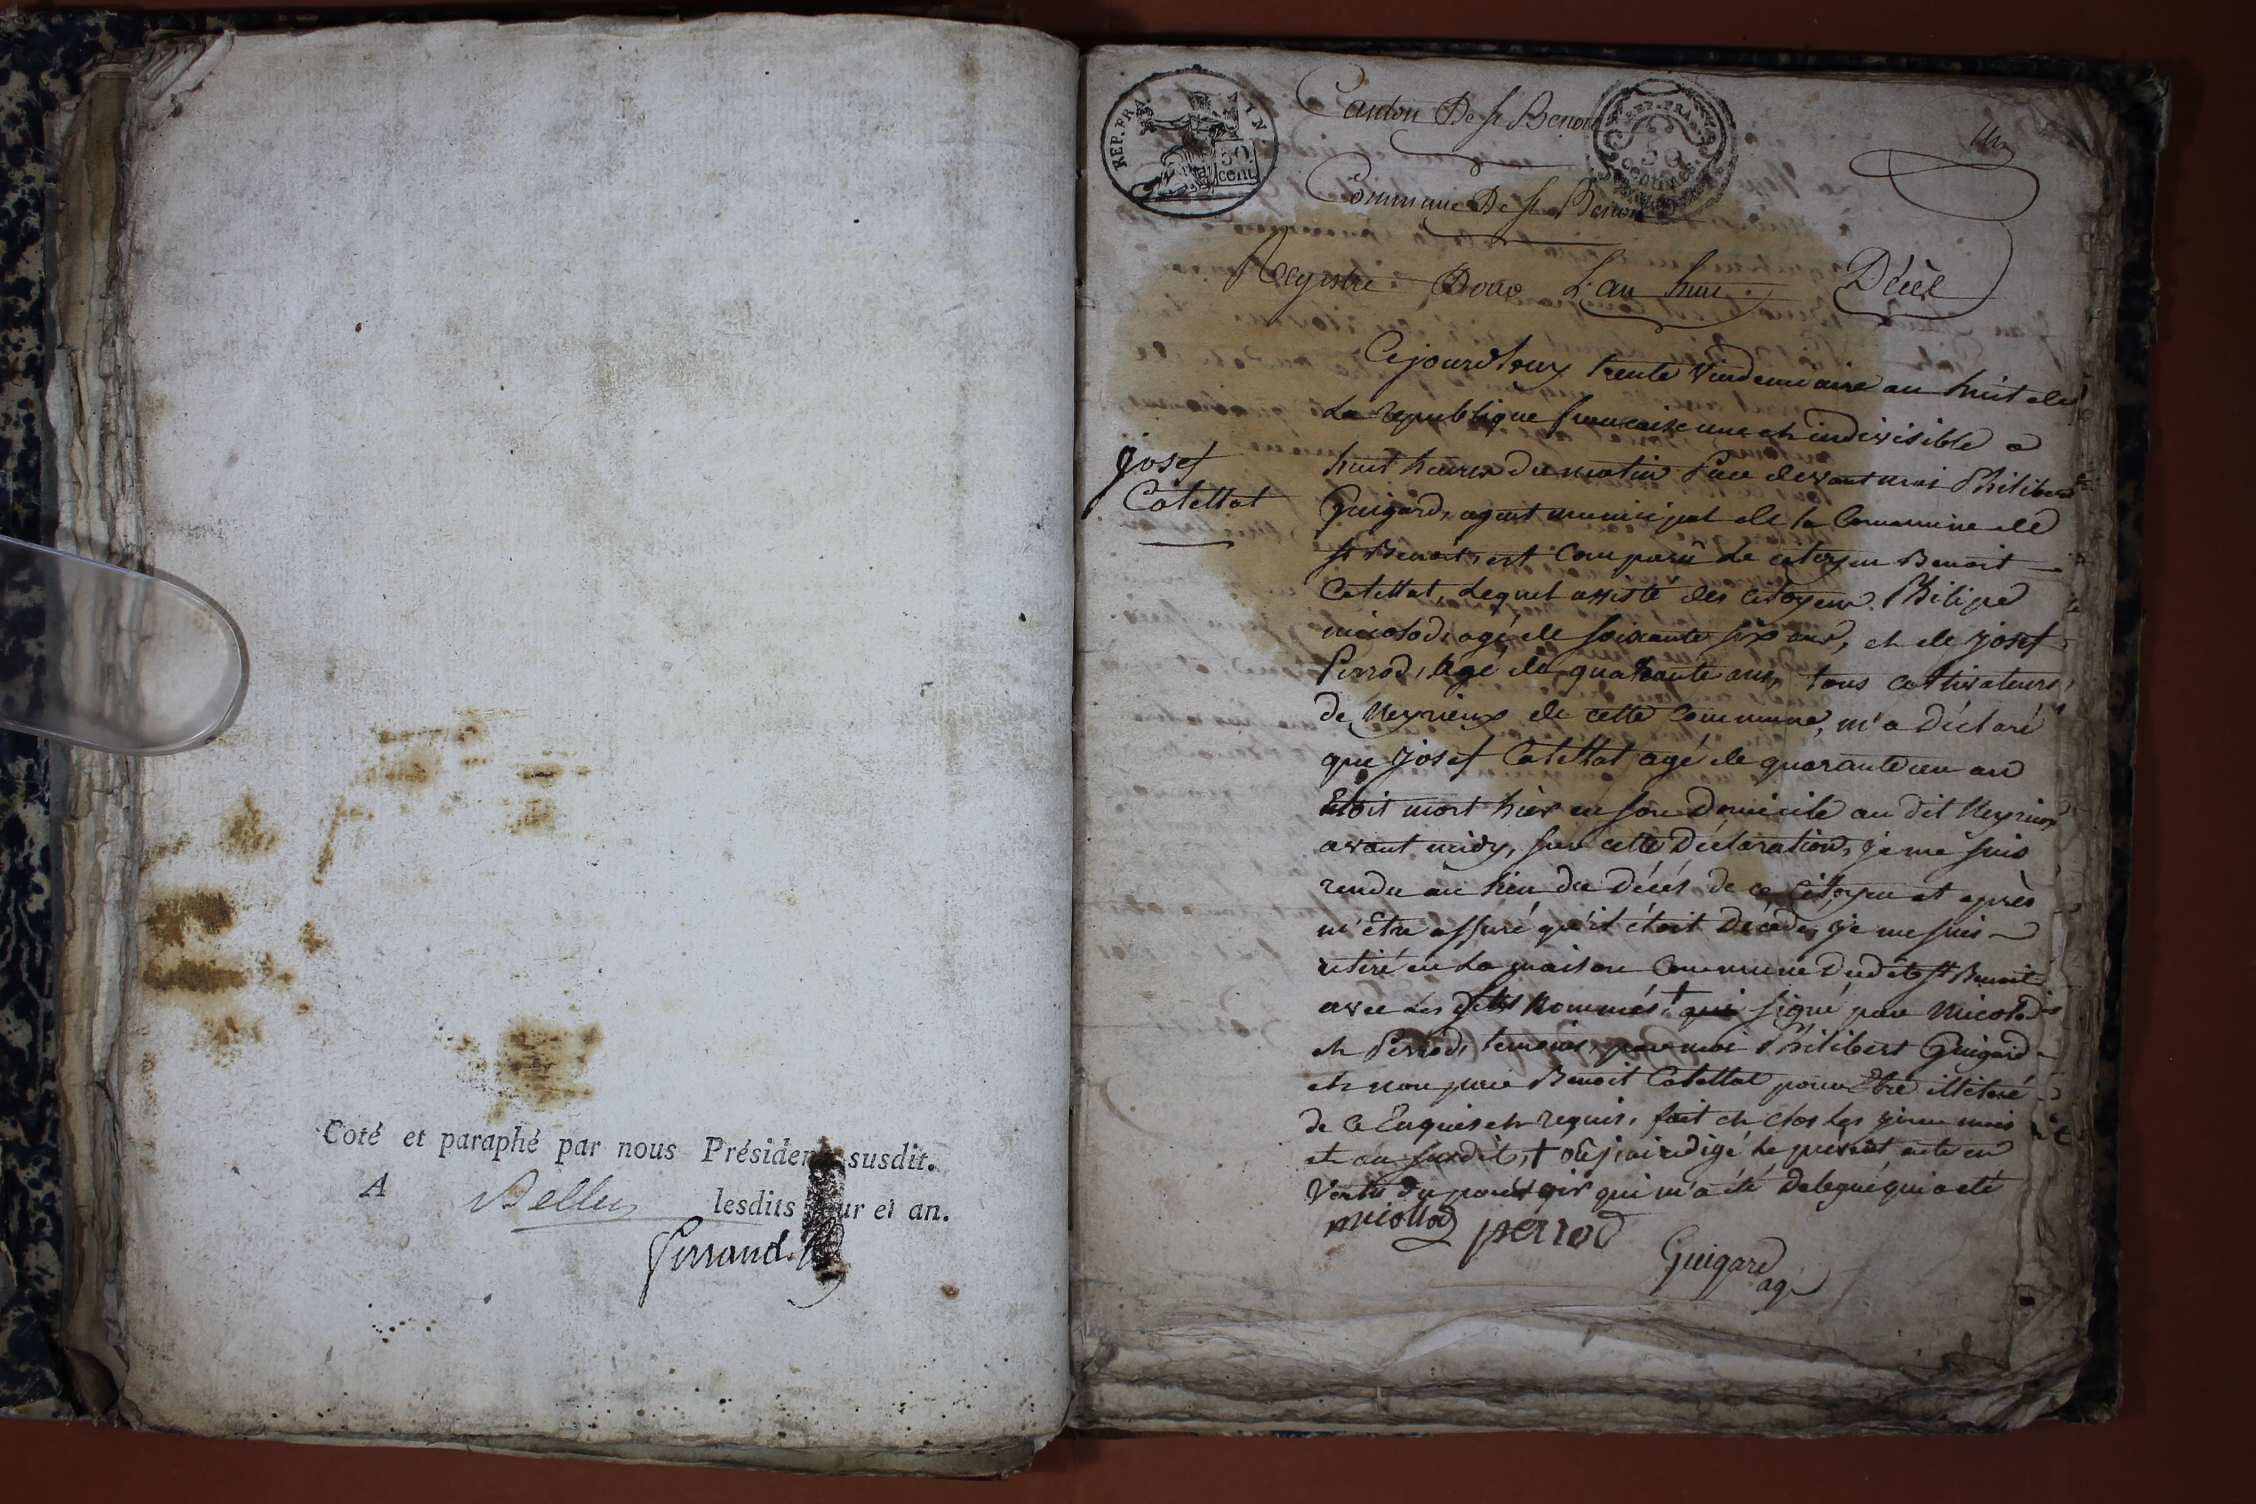 Coté et paraphé par nous Président susdit.
A Belley lesdits jour et an.
REP. FRA
50
cent
Canton De st Benoit
REP. FRA
50
centimes
un
Commune De st Benoit
Registre Pour L'an huit Décès
Josef
Catettat
Cejourdhuy trente Vindemiaire an huit de
La republique francaise une et indivisible a
huit heures du matin Pare devant moi Philibert
Guigard, agent municipal de la Commune de
st Benoit, est Comparû Le citoyen Benoit
Catettat, Lequel assisté des citoyens Philipe
micolod, agé de soixante six ans, et de Josef
Perrod, agé de quatrante ans, tous cultivateurs,
de Neyrieux de cette Commune, m'a déclaré
que Josef Catettat agé de quarante un an
Etoit mort hièr en son Domicile au dit Neyrieux
avant midy, sur cette Déclaration, je me suis
rendu au lieu du Décés de ce Citoyen et après
m'être assuré qu'il étoit Décédé, je me suis
retiré en La maison Commune Dudit st Benoit
avec Les dits nommés, + qui signé par micolod
et Perrod, temoins, par moi Philibert Guigard
et non par Benoit Catettat pour Etre illiteré
de Ce Enquis et requis, fait et clos les jour mois
et an susdit, + où j'ai redigé Le présent acte en
Vertu du pouvoir qui m'a été delegué qui a été
micollod perrod
Guigard
ag.